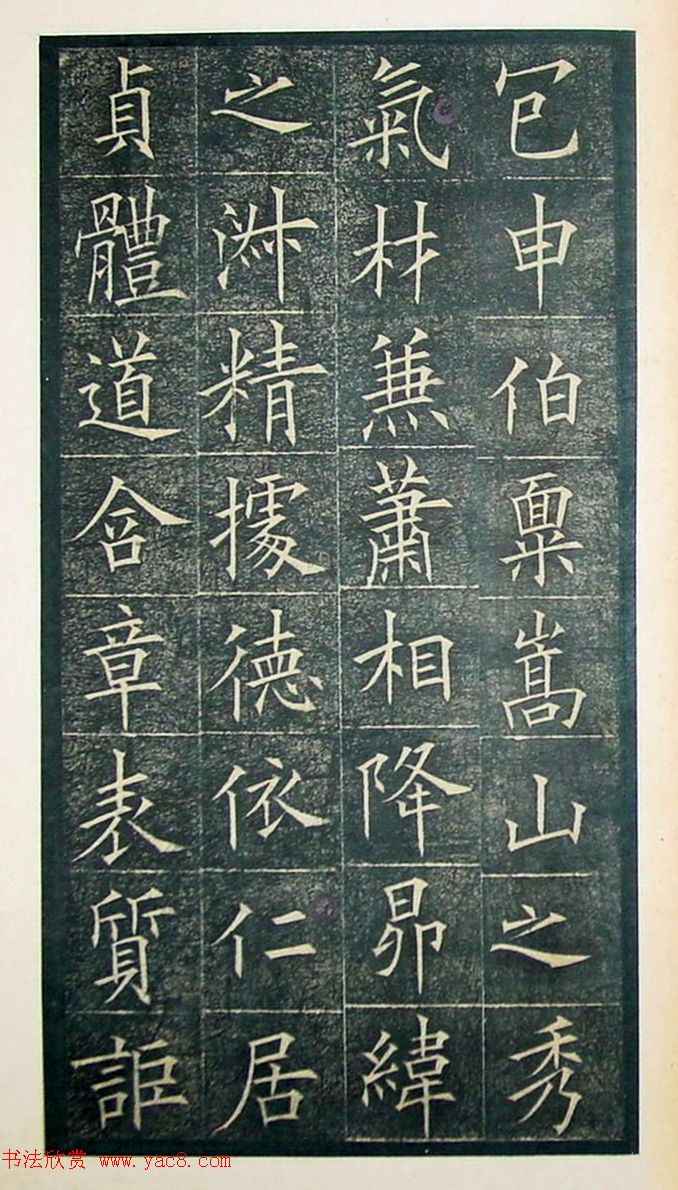 包申伯稟嵩山之秀
氣材兼蕭相降昴緯
之淋精據德依仁居
貞體道含章表質詎
书法欣赏 www.yac8.com